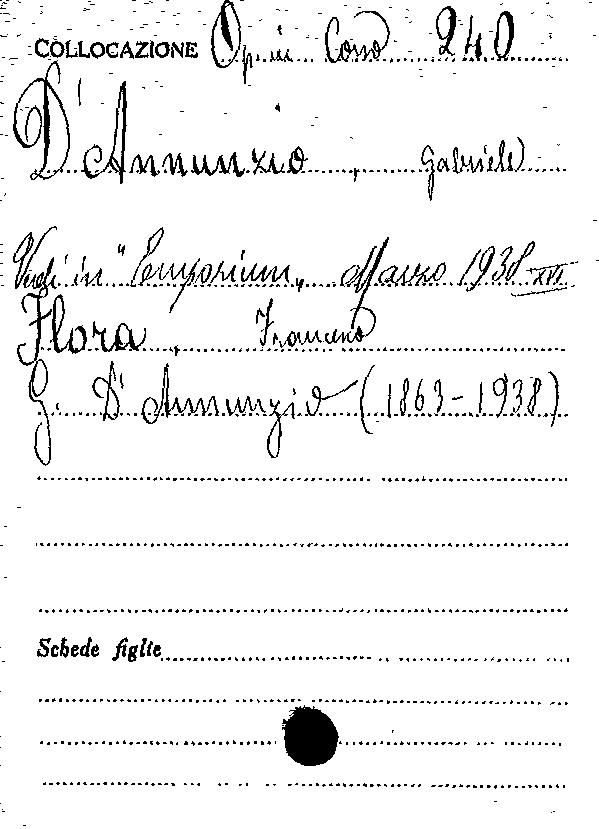 COLLOCAZIONE Op. in Corso 240
D'Annunzio, Gabriele
Vedi in "Emporium" Marzo 1938 XVI
Flora, Francesco
G. D'Annunzio (1863-1938)
Schede figlie